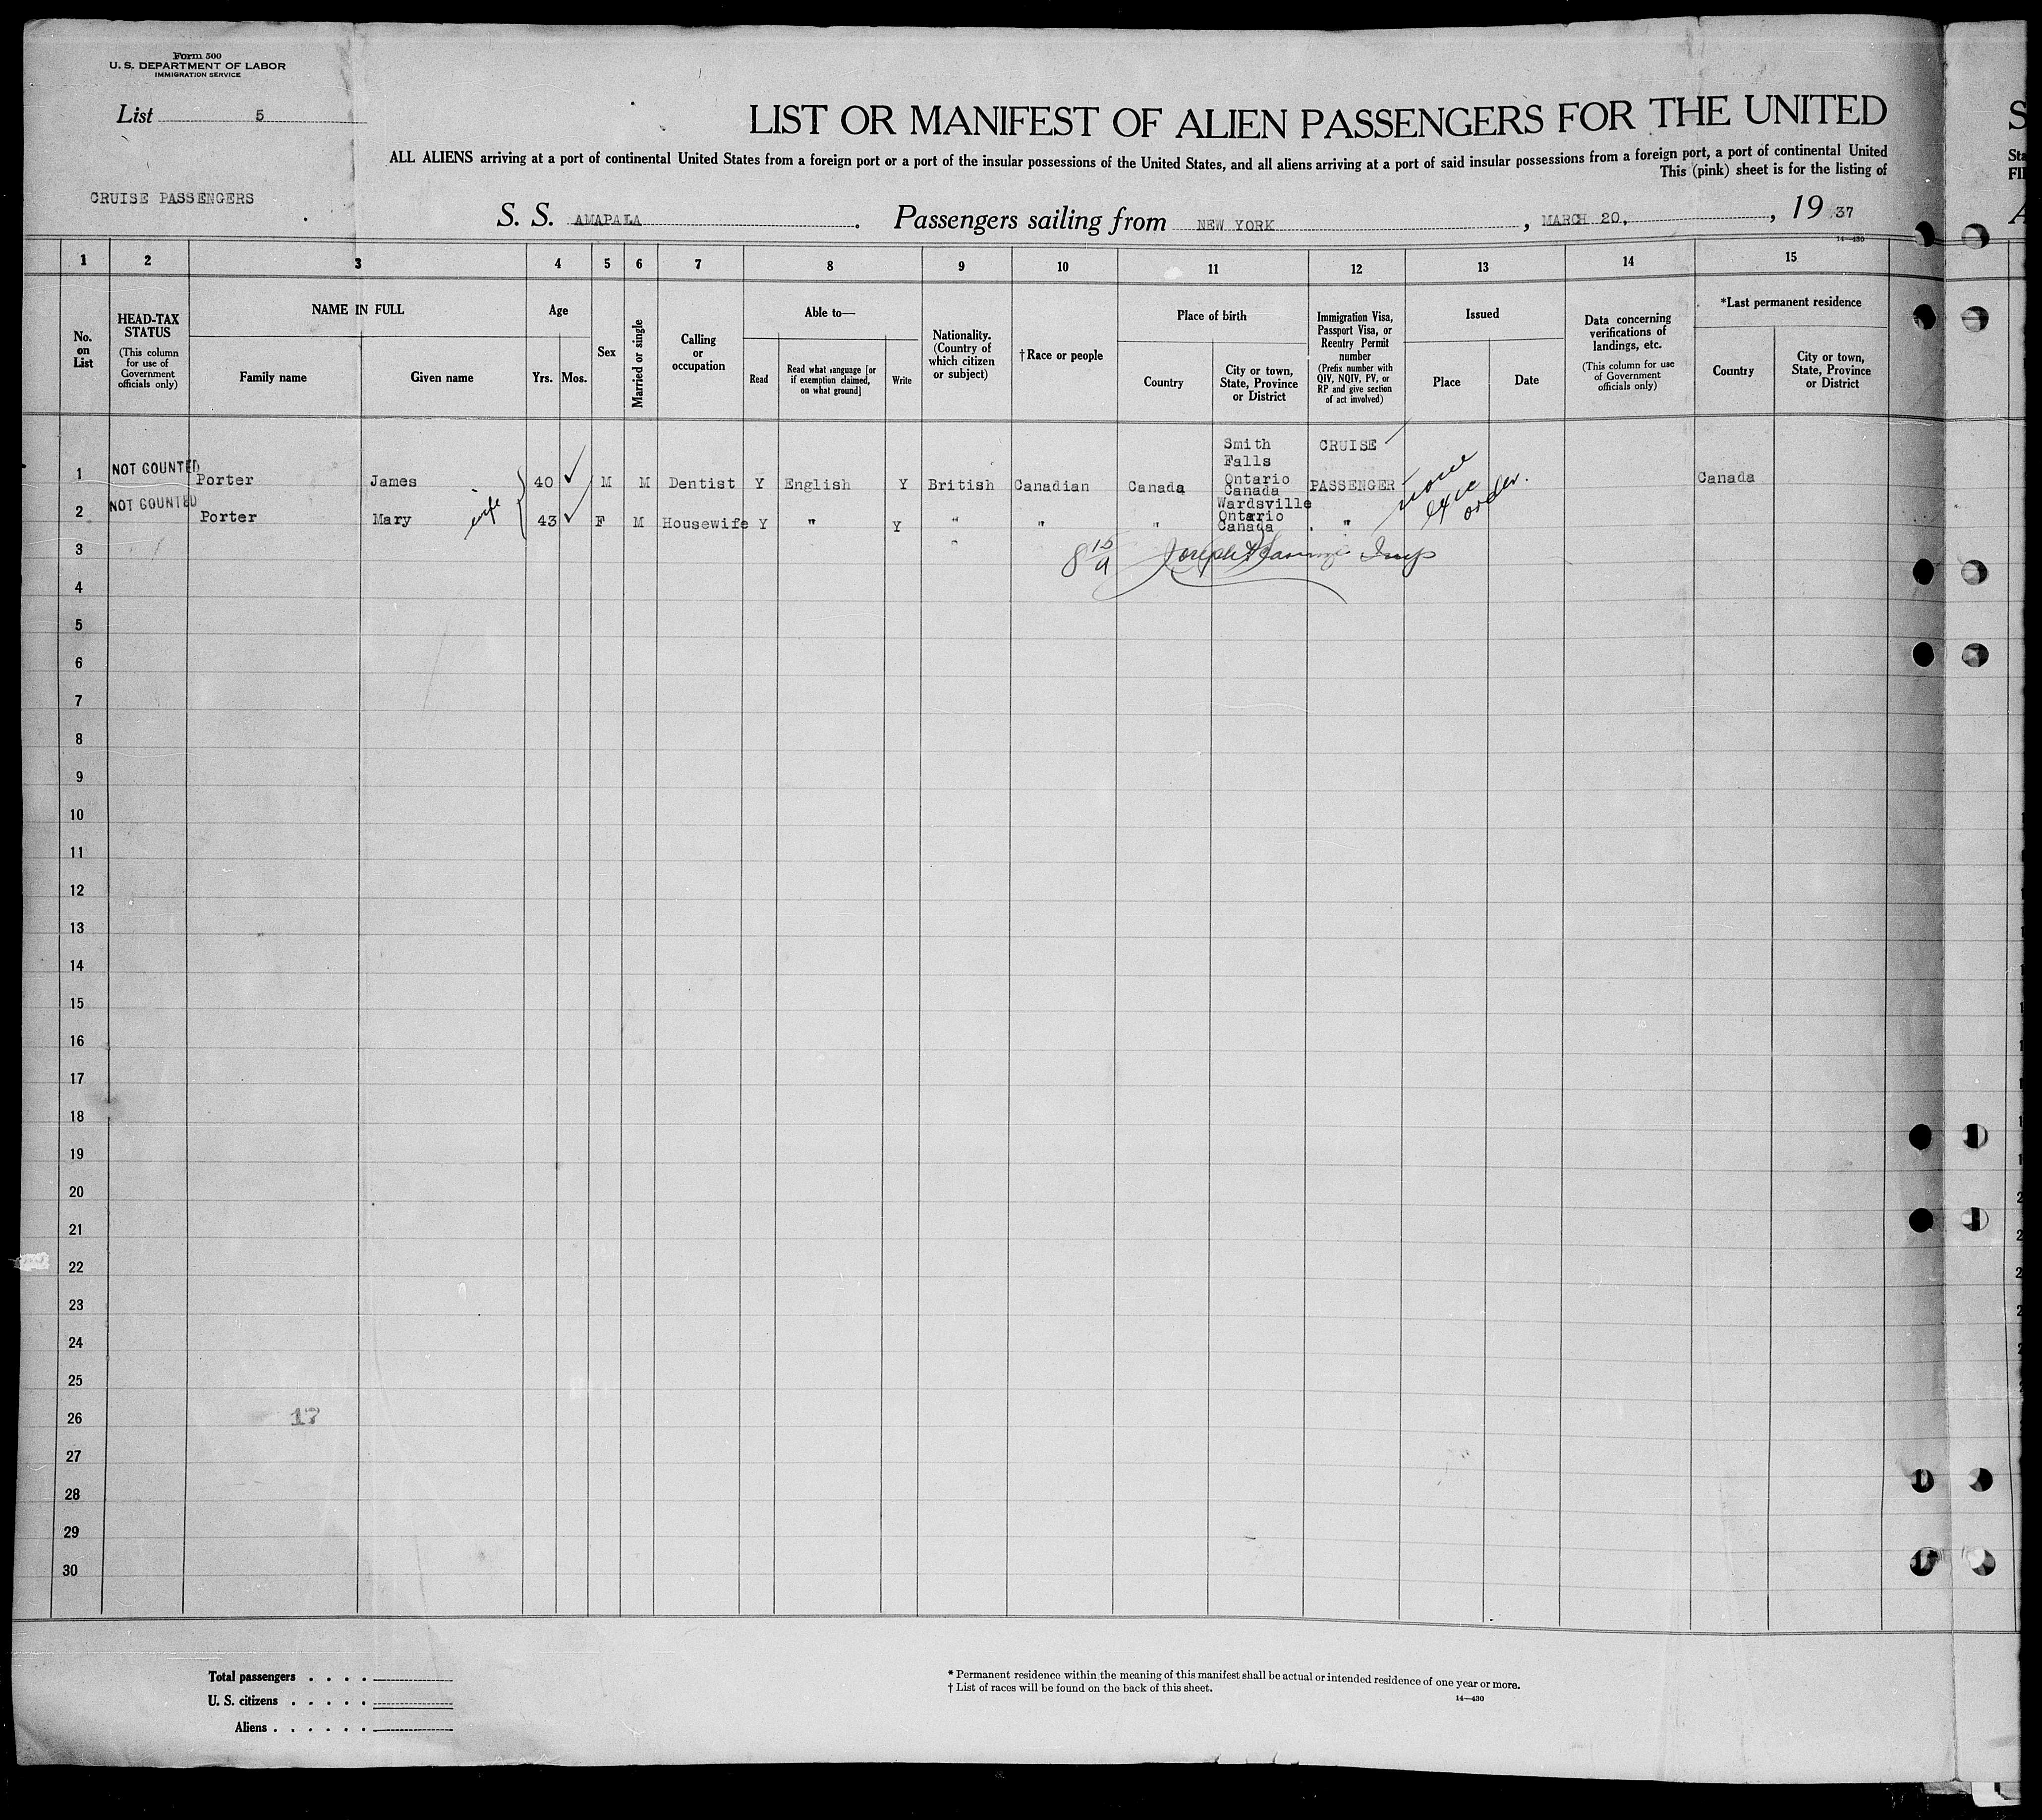 Form 500
U. S. DEPARTMENT OF LABOR
IMMIGRATION SERVICE
List 5
LIST OR MANIFEST OF ALIEN PASSENGERS FOR THE UNITED
S
ALL ALIENS arriving at a port of continental United States from a foreign port or a port of the insular possessions of the United States, and all aliens arriving at a port of said insular possessions from a foreign port, a port of continental United
Sta
This (pink) sheet is for the listing of
FI
CRUISE PASSENGERS
S. S. AMAPALA. Passengers sailing from NEW YORK, MARCH 20, , 19 37
14—430
1 2 3 4 5 6 7 8 9 10 11 12 13 14 15
No. on List
HEAD-TAX STATUS
(This column for use of Government officials only)
NAME IN FULL
Family name
Given name
Age
Yrs. Mos.
Sex
Married or single
Calling or occupation
Able to—
Read
Read what language [or if exemption claimed, on what ground]
Write
Nationality. (Country of which citizen or subject)
†Race or people
Place of birth
Country
City or town, State, Province or District
Immigration Visa, Passport Visa, or Reentry Permit number
(Prefix number with QIV, NQIV, PV, or RP and give section of act involved)
Issued
Place
Date
Data concerning verifications of landings, etc.
(This column for use of Government officials only)
*Last permanent residence
Country
City or town, State, Province or District
1 NOT COUNTED Porter James 40 ✓ M M Dentist Y English Y British Canadian Canada Smith Falls Ontario Canada CRUISE PASSENGER Canada
2 NOT COUNTED Porter Mary wife 43 ✓ F M Housewife Y " Y " " " Wardsville Ontario Canada "
none exec order.
3
4
5
6
7
8
9
10
11
12
13
14
15
16
17
18
19
20
21
22
23
24
25
26
17
27
28
29
30
Total passengers . . . .
U. S. citizens . . . . .
Aliens . . . . . .
* Permanent residence within the meaning of this manifest shall be actual or intended residence of one year or more.
† List of races will be found on the back of this sheet.
14—430